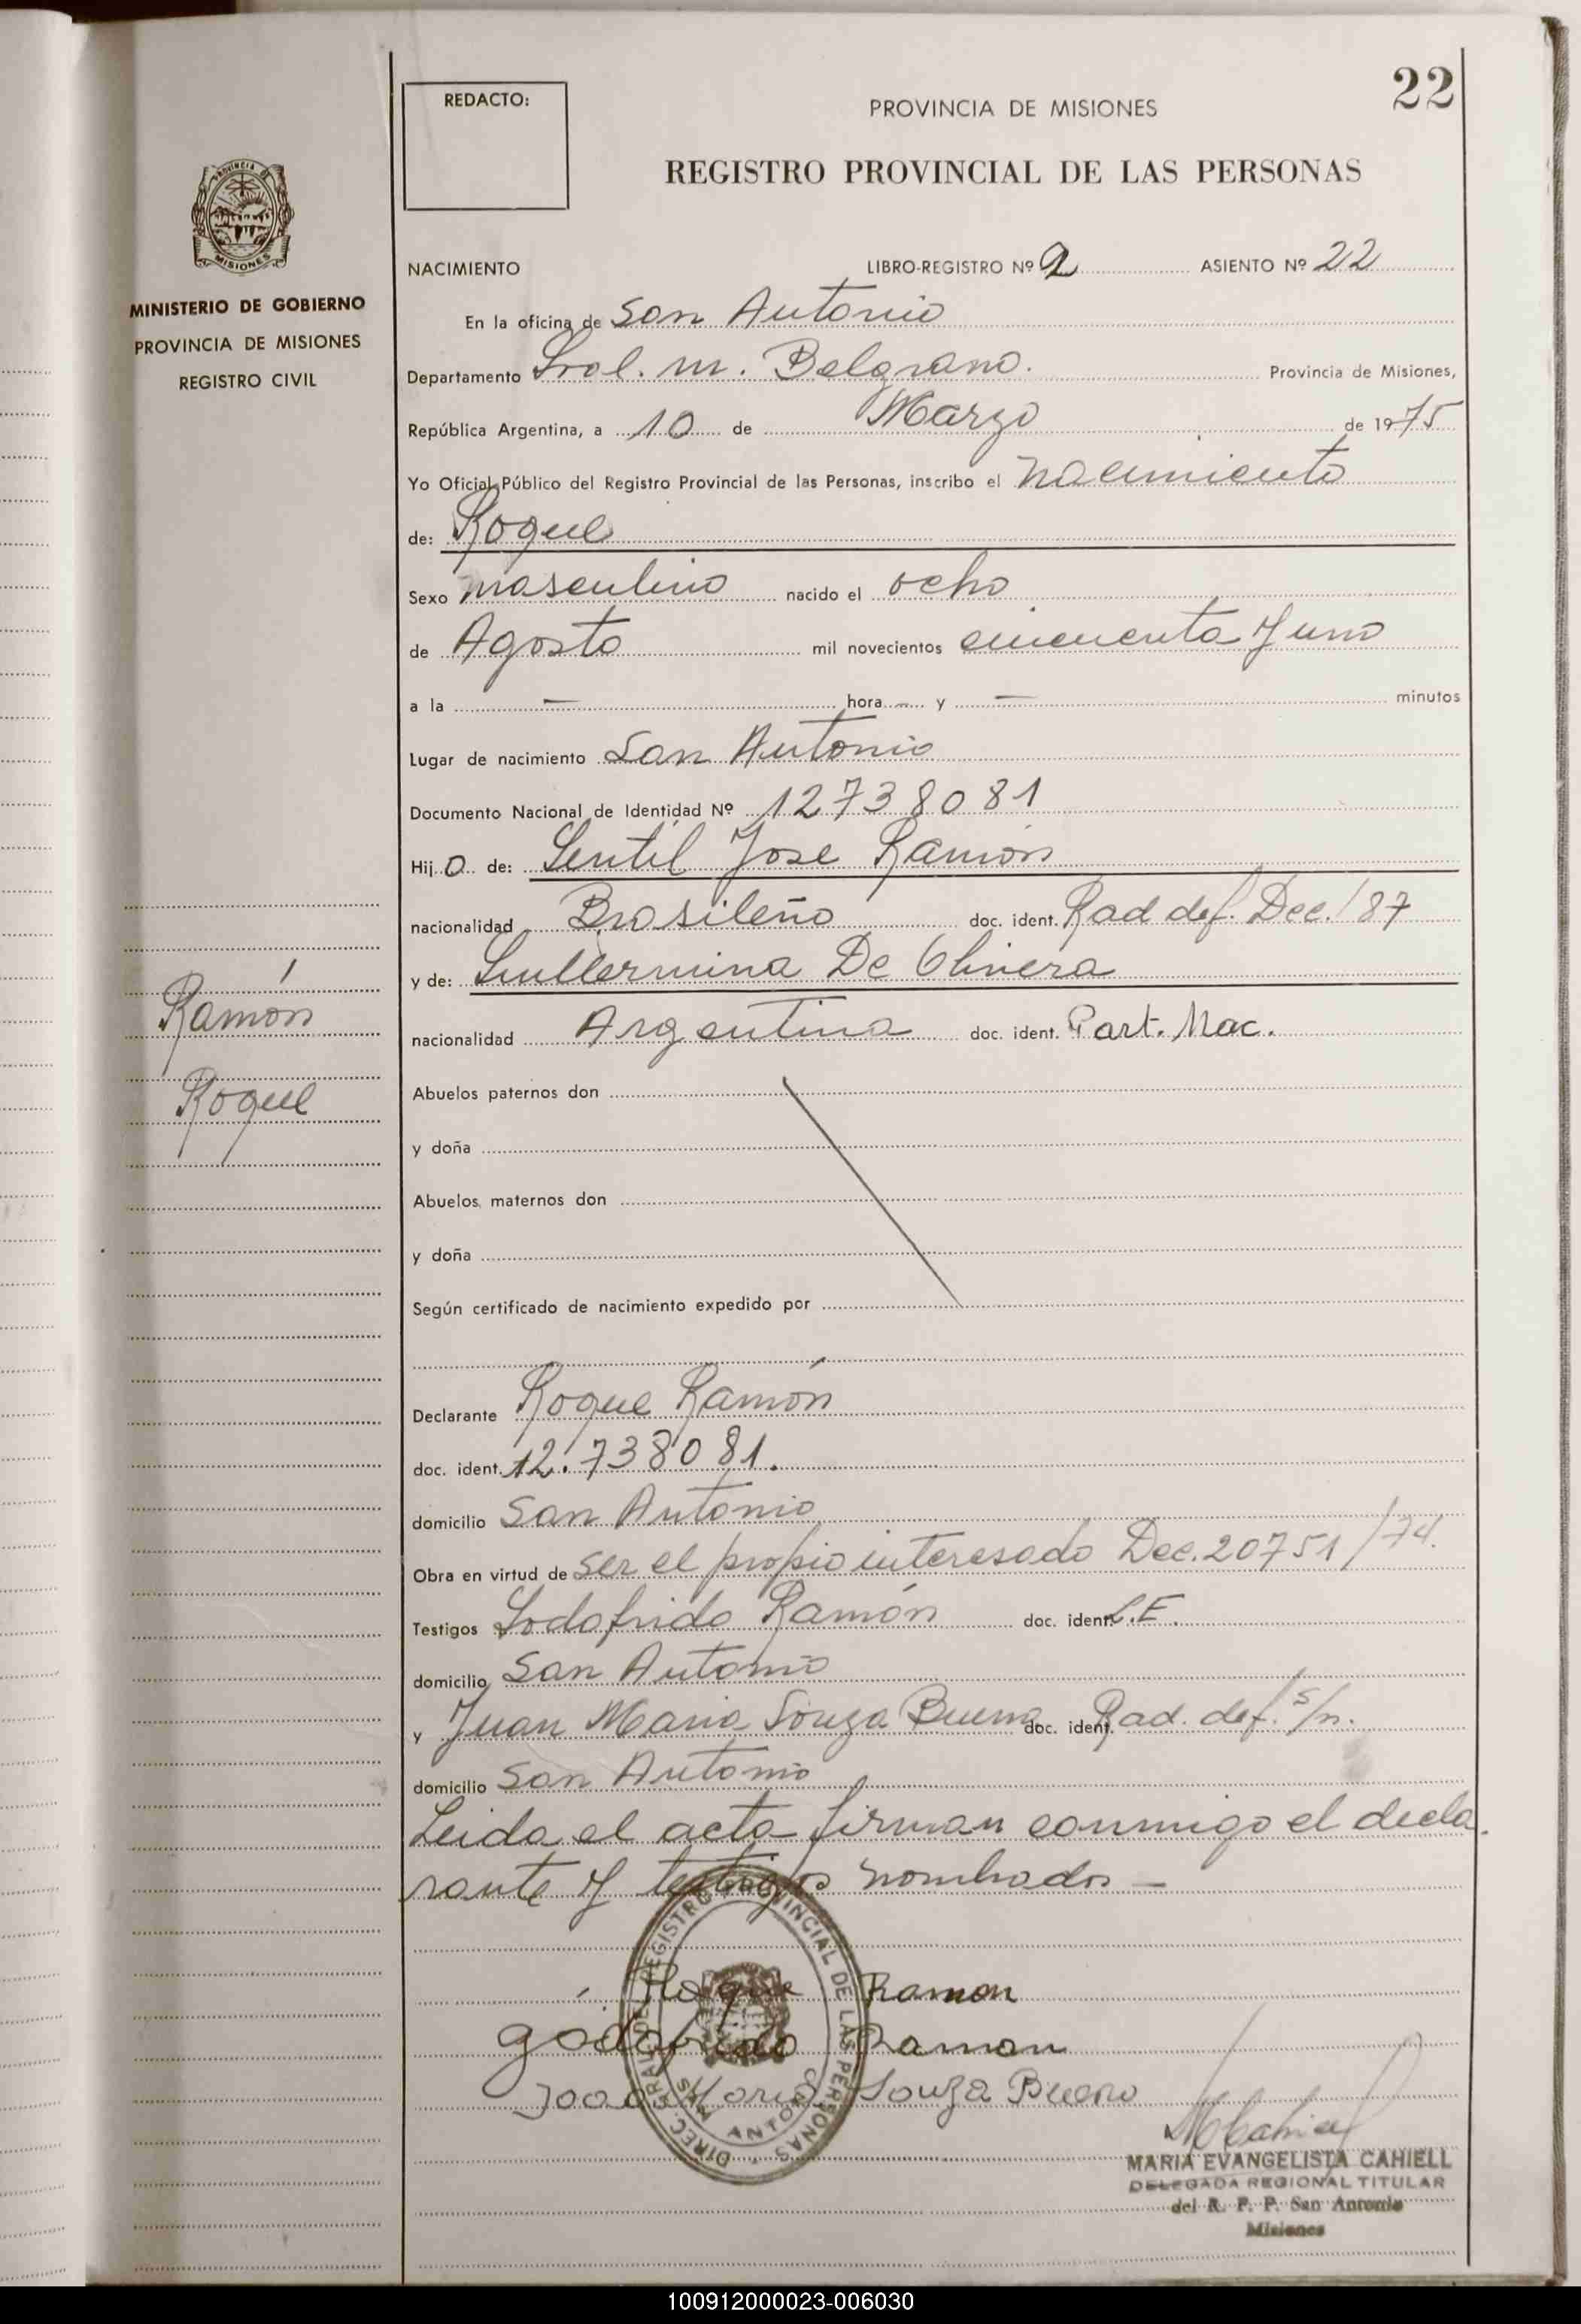 22
REDACTO:
PROVINCIA DE MISIONES
REGISTRO PROVINCIAL DE LAS PERSONAS
PROVINCIA DE
MISIONES
MINISTERIO DE GOBIERNO
PROVINCIA DE MISIONES
REGISTRO CIVIL
NACIMIENTO LIBRO-REGISTRO Nº 2 ASIENTO Nº 22
En la oficina de San Antonio
Departamento Gral. M. Belgrano. Provincia de Misiones,
República Argentina, a 10 de Marzo de 1975
Yo Oficial Público del Registro Provincial de las Personas, inscribo el nacimiento
de: Roque
Sexo masculino nacido el ocho
de Agosto mil novecientos cincuenta y uno
a la — hora — y — minutos
Lugar de nacimiento San Antonio
Documento Nacional de Identidad Nº 12738081
Hij o de: Gentil Jose Ramón
nacionalidad Brasileño doc. ident. Rad def. Dec. /87
y de: Guillermina De Olivera
nacionalidad Argentina doc. ident. Part. Nac.
Ramón
Roque
Abuelos paternos don
y doña
Abuelos maternos don
y doña
Según certificado de nacimiento expedido por
Declarante Roque Ramón
doc. ident. 12.738081.
domicilio San Antonio
Obra en virtud de ser el propio interesado Dec. 20751/74.
Testigos Godofrido Ramón doc. ident. L.E.
domicilio San Antonio
y Juan Maria Souza Bueno doc. ident. Rad. def. s/n.
domicilio San Antonio
Leida el acta firman conmigo el decla
rante y testigos nombrados —
DIREC. GRAL. DE REGISTRO PROVINCIAL DE LAS PERSONAS
SAN ANTONIO
Roque Ramon
godofrido Ramon
Joao Maria Souza Bueno
MARIA EVANGELISTA CAHIELL
DELEGADA REGIONAL TITULAR
del R. P. P. San Antonio
Misiones
100912000023-006030